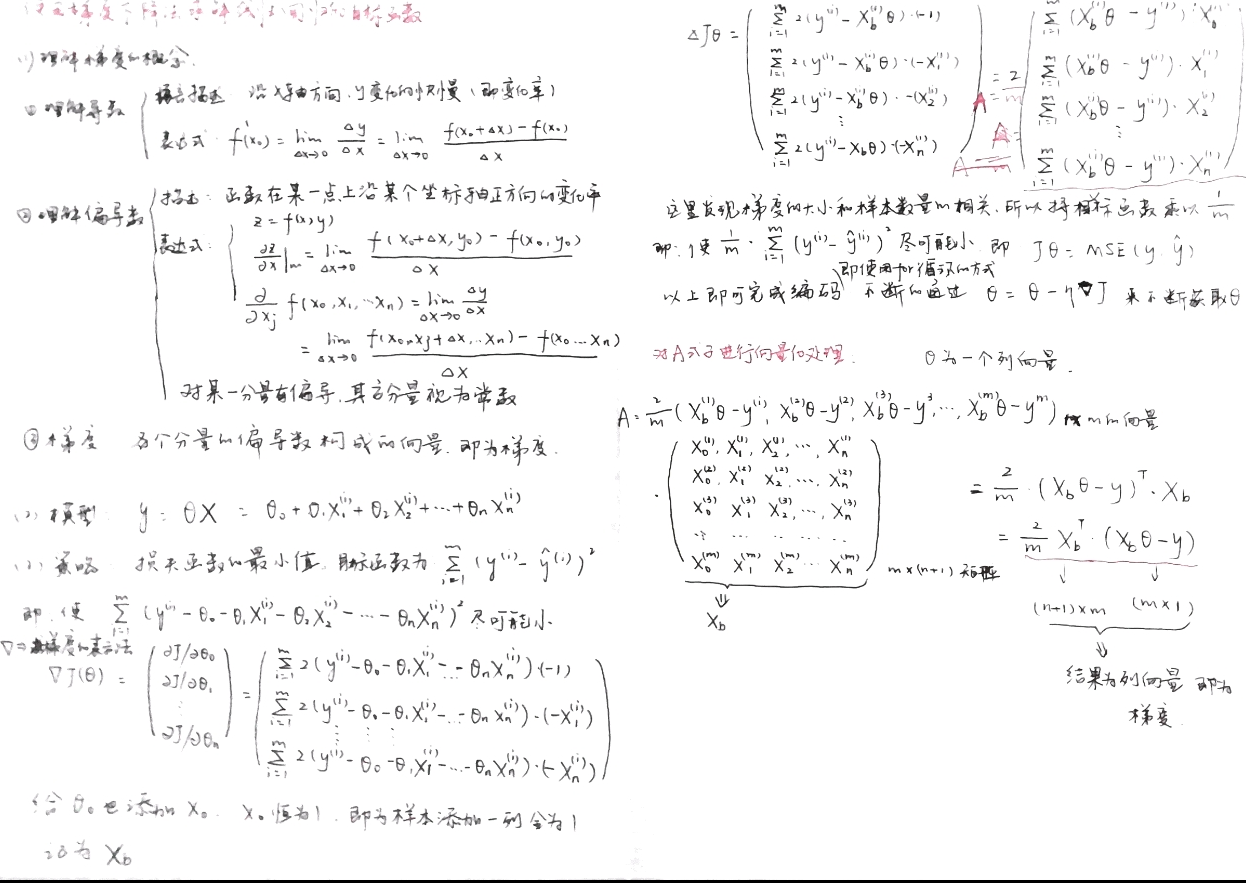 使用梯度下降法求解线性回归的目标函数
(1) 理解梯度的概念.
① 理解导数
语言描述: 沿X轴方向, y变化的快慢 (即变化率)
表达式: f'(x₀) = lim_{Δx→0} Δy/Δx = lim_{Δx→0} (f(x₀+Δx) - f(x₀))/Δx
② 理解偏导数
描述: 函数在某一点上沿某个坐标轴正方向的变化率
表达式:
z = f(x,y)
∂z/∂x|ₘ = lim_{Δx→0} (f(x₀+Δx, y₀) - f(x₀, y₀))/Δx
∂/∂xⱼ f(x₀, x₁, ⋯xₙ) = lim_{Δx→0} Δy/Δx
= lim_{Δx→0} (f(x₀, xⱼ+Δx, ..xₙ) - f(x₀…xₙ))/Δx
对某一分量有偏导, 其它分量视为常数
③ 梯度 各个分量的偏导数构成的向量, 即为梯度.
(2) 模型: y = θX = θ₀ + θ₁X₁^(i) + θ₂X₂^(i) + ⋯ + θₙXₙ^(i)
策略 损失函数的最小值, 目标函数为 Σ_{i=1}^m (y^(i) - ŷ^(i))²
即, 使 Σ_{i=1}^m (y^(i) - θ₀ - θ₁X₁^(i) - θ₂X₂^(i) - ⋯ - θₙXₙ^(i))² 尽可能小
∇⇒梯度的表示法
∇J(θ) = (∂J/∂θ₀, ∂J/∂θ₁, ⋮, ∂J/∂θₙ) =
Σ_{i=1}^m 2(y^(i) - θ₀ - θ₁X₁^(i) - … - θₙXₙ^(i))·(-1)
Σ_{i=1}^m 2(y^(i) - θ₀ - θ₁X₁^(i) - … - θₙXₙ^(i))·(-X₁^(i))
⋮ ⋮ ⋮
Σ_{i=1}^m 2(y^(i) - θ₀ - θ₁X₁^(i) - … - θₙXₙ^(i))·(-Xₙ^(i))
给θ₀也添加X₀. X₀恒为1, 即为样本添加一列全为1
记为 X_b
ΔJθ =
Σ_{i=1}^m 2(y^(i) - X_b^(i)θ)·(-1)
Σ_{i=1}^m 2(y^(i) - X_b^(i)θ)·(-X₁^(i))
Σ_{i=1}^m 2(y^(i) - X_b^(i)θ)·-(X₂^(i))
⋮
Σ_{i=1}^m 2(y^(i) - X_bθ)·(-Xₙ^(i))
= 2/m
Σ_{i=1}^m (X_b^(i)θ - y^(i))·X₀^(i)
Σ_{i=1}^m (X_b^(i)θ - y^(i))·X₁^(i)
Σ_{i=1}^m (X_b^(i)θ - y^(i))·X₂^(i)
⋮
Σ_{i=1}^m (X_b^(i)θ - y^(i))·Xₙ^(i)
A =
这里发现梯度的大小和样本数量m相关, 所以将目标函数乘以 1/m
即: 使 1/m · Σ_{i=1}^m (y^(i) - ŷ^(i))² 尽可能小, 即 Jθ = MSE(y, ŷ)
即使用for循环的方式
以上即可完成编码 不断的通过 θ = θ - η∇J 来不断获取θ
对A式子进行向量化处理. θ为一个列向量.
A = 2/m (X_b^(1)θ - y^(1), X_b^(2)θ - y^(2), X_b^(3)θ - y^3, ⋯, X_b^(m)θ - y^m) 向量
·
X₀^(1), X₁^(1), X₂^(1), ⋯, Xₙ^(1)
X₀^(2), X₁^(2) X₂^(2), ⋯, Xₙ^(2)
X₀^(3) X₁^(3) X₂^(3), ⋯, Xₙ^(3)
⋯ ⋯ ⋯
X₀^(m) X₁^(m) X₂^(m) ⋯ Xₙ^(m)
m×(n+1) 矩阵
⇓
X_b
= 2/m · (X_bθ - y)ᵀ · X_b
= 2/m X_bᵀ · (X_bθ - y)
↓ ↓
(n+1)×m (m×1)
⇓
结果为列向量 即为
梯度.